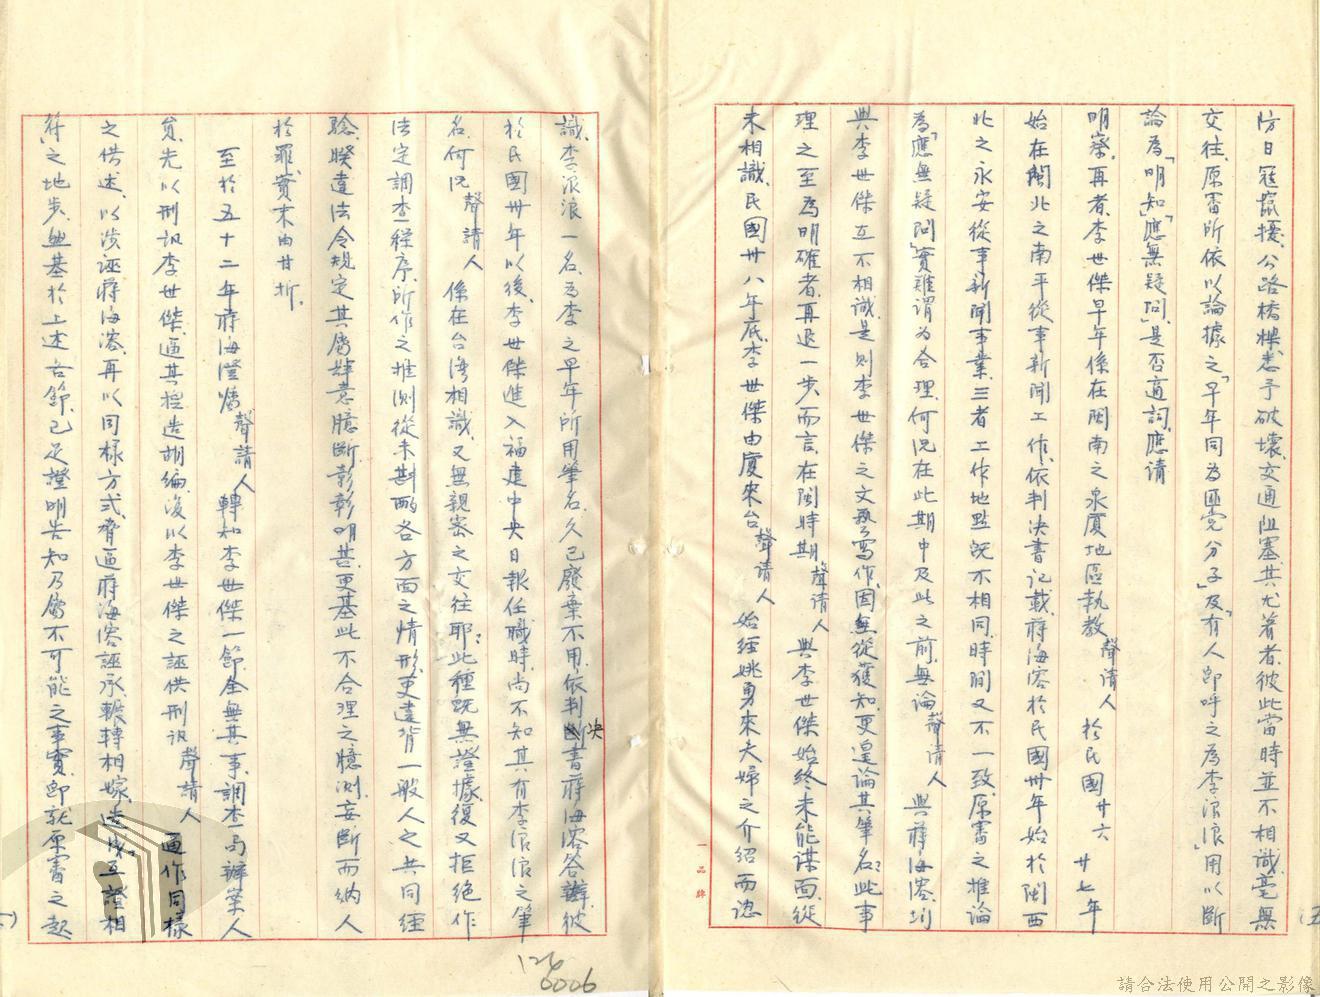 防日寇竄擾、公路橋樑悉予破壞、交通阻塞、其尤著者、彼此當時並不相識、毫無
交往、原審所依以論據之「早年同為匪党分子」及「有人即呼之為李浪浪」用以斷
論為「明知」「應無疑問」是否適詞、應請
明察、再者、李世傑早年係在閩南之泉厦地區執教、聲請人於民國廿六 廿七年
始在閩北之南平從事新聞工作、依判決書記載、蔣海溶於民國卅年始於閩西
北之永安從事新聞事業、三者工作地點既不相同、時間又不一致、原審之推論
為「應無疑問」實難謂為合理、何況在此期中及此之前、無論聲請人與蔣海溶、均
與李世傑互不相識、是則李世傑之文藝寫作、固無從獲知、更遑論其筆名、此事
理之至為明確者、再退一步而言、在閩時期、聲請人與李世傑始終未能謀面、從
未相識、民國卅八年底、李世傑由廈來台、聲請人始經姚勇來夫婦之介紹而認
識、李浪浪一名、為李之早年所用筆名、久已廢棄不用、依判決書蔣海溶答辯、彼
於民國卅年以後、李世傑進入福建中央日報任職時、尚不知其有李浪浪之筆
名、何況聲請人係在台灣相識、又無親密之交往耶、此種既無證據、復又拒絕作
法定調查程序、所作之推測、從未斟酌各方面之情形、更違背一般人之共同經
驗、睽違法令規定、其屬肆意臆斷彰彰明甚、更基此不合理之臆測、妄斷而納人
於罪、實未由甘折、
至於五十二年蔣海溶燐聲請人轉知李世傑一節、全無其事、調查局辦案人
員、先以刑訊李世傑、逼其捏造胡編、後以李世傑之誣供刑訊聲請人逼作同樣
之供述、以涉誣蔣海溶、再以同樣方式、脅逼蔣海溶誣承、輾轉相嫁、造成互證相
符之地步、無基於上述各節、已足證明告知乃屬不可能之事實、即就原審之起
一品牌
126
0006
請合法使用公開之影像